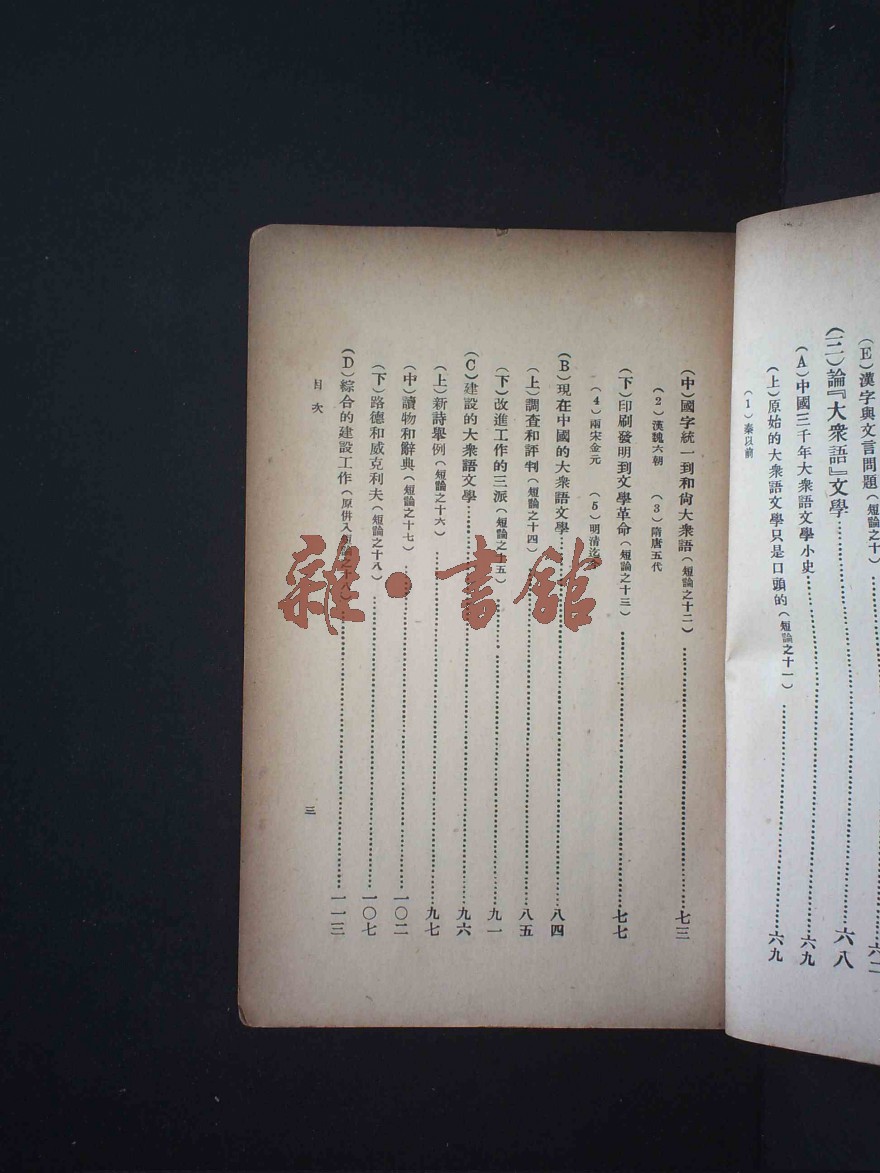 (E)漢字與文言問題(短論之十)……六二
(三)論『大衆語』文學……六八
(A)中國三千年大衆語文學小史……六九
(上)原始的大衆語文學只是口頭的(短論之十一)……六九
(1)秦以前
(中)國字統一到和尙大衆語(短論之十二)……七三
(2)漢魏六朝 (3)隋唐五代
(下)印刷發明到文學革命(短論之十三)……七七
(4)兩宋金元 (5)明清迄
(B)現在中國的大衆語文學……八四
(上)調查和評判(短論之十四)……八五
(下)改進工作的三派(短論之十五)……九一
(C)建設的大衆語文學……九六
(上)新詩舉例(短論之十六)……九七
(中)讀物和辭典(短論之十七)……一〇二
(下)路德和威克利夫(短論之十八)……一〇七
(D)綜合的建設工作(原併入短論之十八)……一一三
目次
三
雜·書館